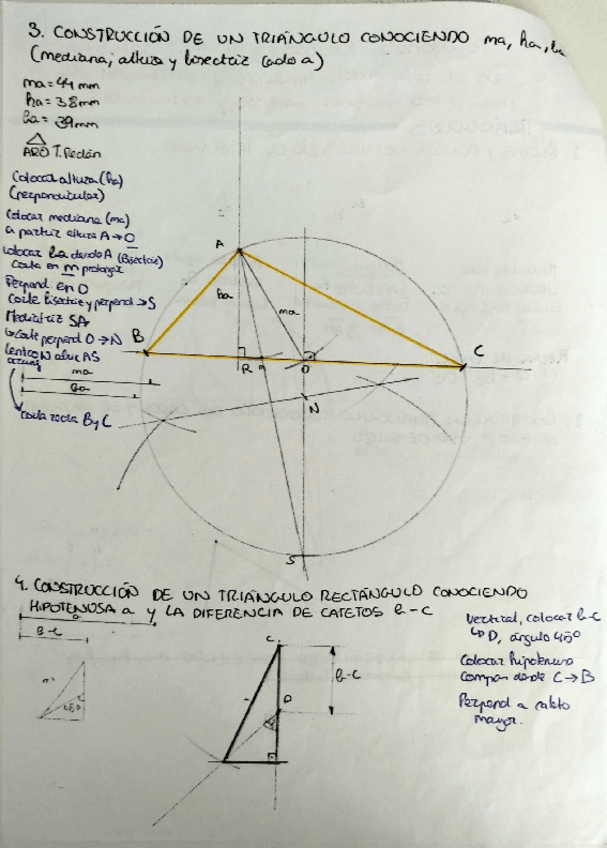 3. CONSTRUCCIÓN DE UN TRIÁNGULO CONOCIENDO ma, ha, ba
(mediana, altura y bisectriz lado a)
ma = 44 mm
ha = 38mm
ba = 39mm
Colocar altura (ha)
(perpendicular)
Colocar mediana (ma)
a partir altura A → O
colocar ba desde A (Bisectriz)
Corta en m prolongar
Perpend en O
Corte Bisectriz y perpend → S
Mediatriz SA
Corte perpend O → N
Centro N abrir AS
ma
ba
Corta recta B y C
A
ha
ma
B
C
R
O
N
S
4. CONSTRUCCIÓN DE UN TRIÁNGULO RECTÁNGULO CONOCIENDO
HIPOTENUSA a Y LA DIFERENCIA DE CATETOS b-C
a
b-c
a
C
b-C
D
vertical, colocar b-C
↳ D, ángulo 45º
Colocar hipotenusa
compas desde C → B
Perpend a cateto
mayor.